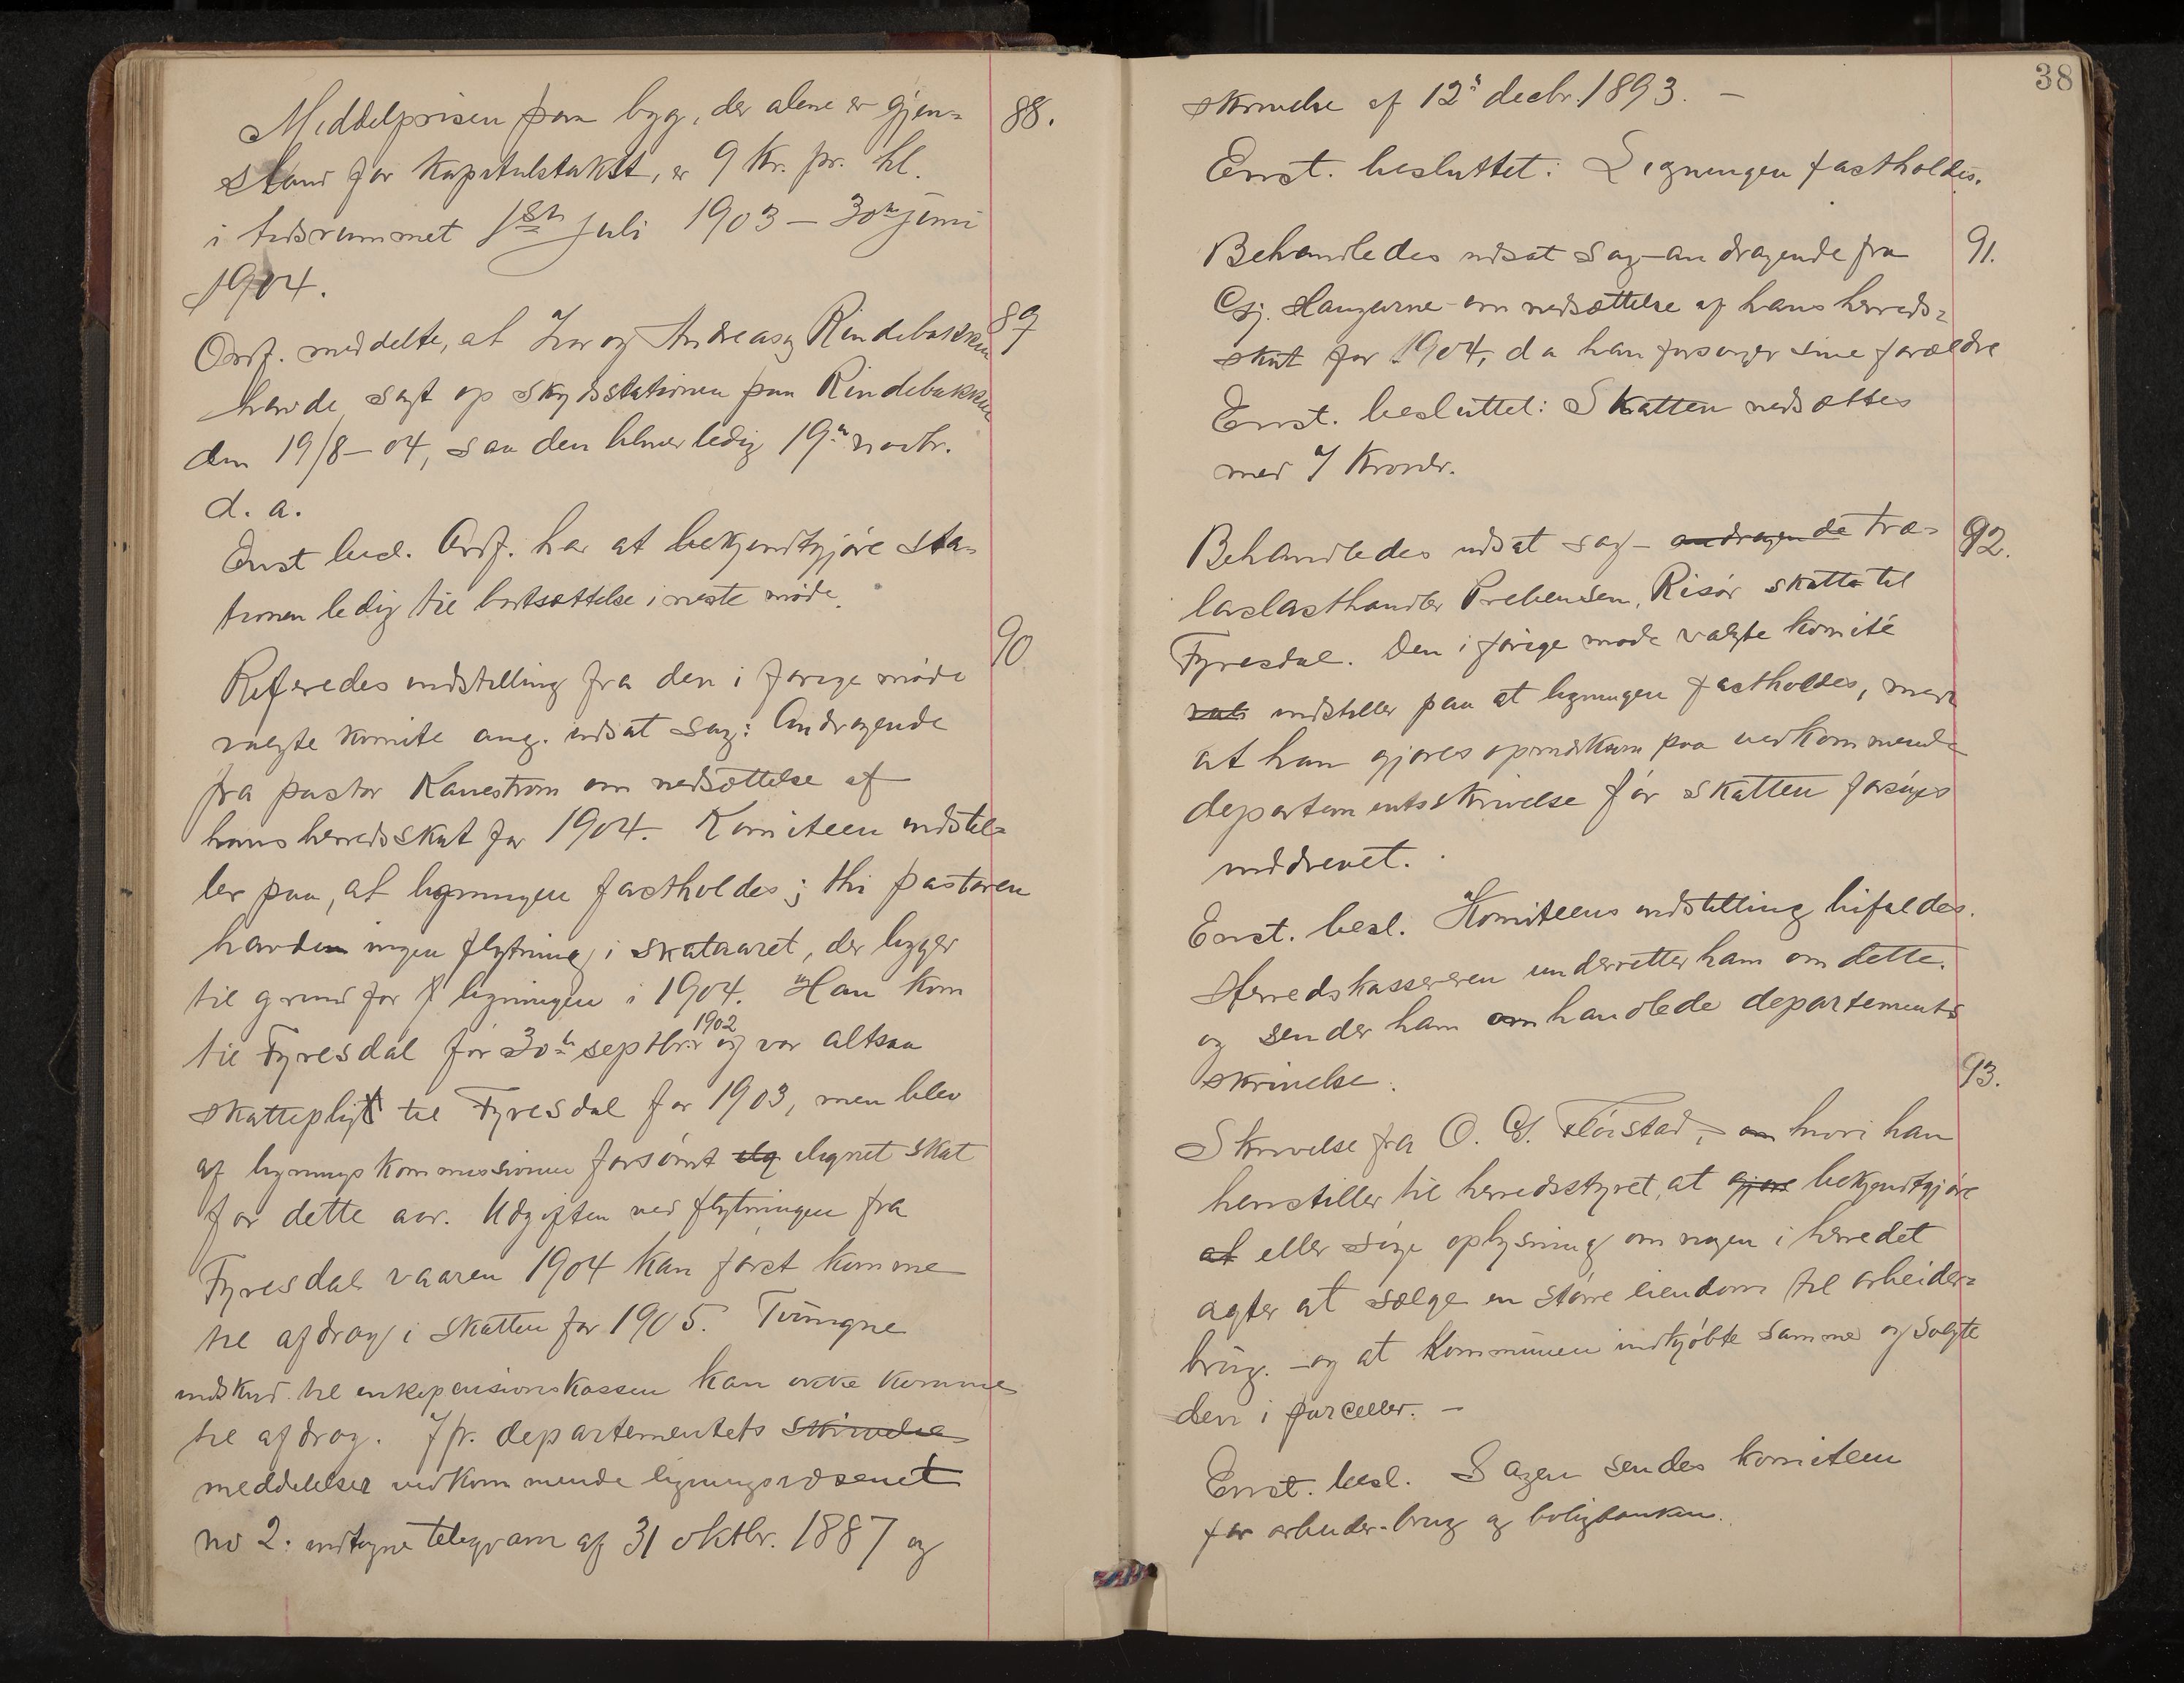 88.
Middelprisen paa byg, der alene er gjen-
stand for kapitelstakst, er 9 kr. pr. hl.
i tidsrummet 1ste juli 1903 – 30te juni
1904.
89
Ordf. meddelte, at Ivar og Andreas Rindebakken
havde sagt op skydsstationen paa Rindebakken
den 19/8–04, saa den bliver ledig 19de novbr.
d. a.
Enst besl. Ordf. har at bekjendtgjøre sta-
tionen ledig til bortsættelse i næste møde.
90
Referedes indstilling fra den i forige møde
valgte komite ang. udsat sag: Andragende
fra pastor Kanestrøm om nedsættelse af
hans herredsskat for 1904. Komiteen indstil-
ler paa, at ligningen fastholdes; thi pastoren
havde ingen flytning i skataaret, der ligger
til grund for ligningen i 1904. Han kom
til Fyresdal før 30te septbr. 1902 og var altsaa
skattepligt til Fyresdal for 1903, men blev
af ligningskommissionen forsømt ilignet skat
for dette aar. Udgiften ved flytningen fra
Fyresdal vaaren 1904 kan først komme
til afdrag i skatten for 1905. Tvungne
indskud til enkepensionskassen kan ikke komme
til afdrag. Jfr. departementets skrivelse
meddelelser vedkommende ligningsvæsenet
no 2. indtagne telegram af 31 oktbr. 1887 og
38
skrivelse af 12te decbr. 1893. –
Enst. besluttet: Ligningen fastholdes.
91.
Behandledes udsat sag – andragende fra
Gj. Haugarne om nedsættelse af hans herreds-
skat for 1904, da han forsørger sine forældre
Enst. besluttet: Skatten nedsættes
med 7 kroner.
92.
Behandledes udsat sag – andragende træ-
lasthandler Prebensen, Risør skatte til
Fyresdal. Den i forige møde valgte komité
indstiller paa at ligningen fastholdes, men
at han gjøres opmerksam paa vedkommende
departementsskrivelse før skatten forsøges
inddrevet.
Enst. besl. Komiteens indstilling bifaldes.
Herredskassereren underretter ham om dette
og sender ham omhandlede departements
skrivelse.
93.
Skrivelse fra O. G. Fløistad, – om hvori han
henstiller til herredsstyret, at gjøre bekjendtgjøre
at eller søge oplysning om nogen i herredet
agter at sælge en større eiendom til arbeider-
brug – og at kommunen indkjøbte samme og solgte
den i parceller. –
Enst. besl. Sagen sendes komiteen
for arbeider-brug og boligbanken.